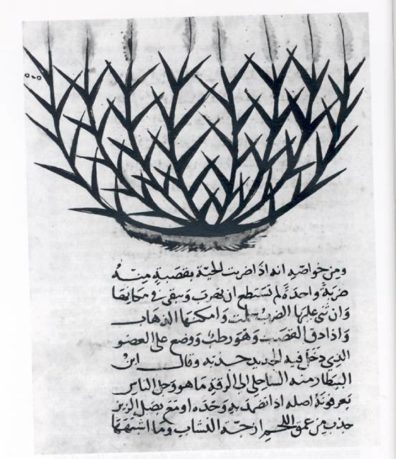 ومن خواصه انه اذا ضربت الحية بقصبة منه
ضربة واحدة لم تستطع ان تهرب وتبقى في مكانها
وان ثنى عليها الضرب وامكنها الذهاب
واذا دق القصب وهو رطب ووضع على العضو
الذي دخل فيه الحديد جذبه وقال ابن
البيطار منه الساحلي الى الرقة ما هو وجل الناس
يعرفونه اصله اذا تضمد به وحده او مع بصل الزير
جذب من عمق اللحم ازجة النشاب وما اشبهها